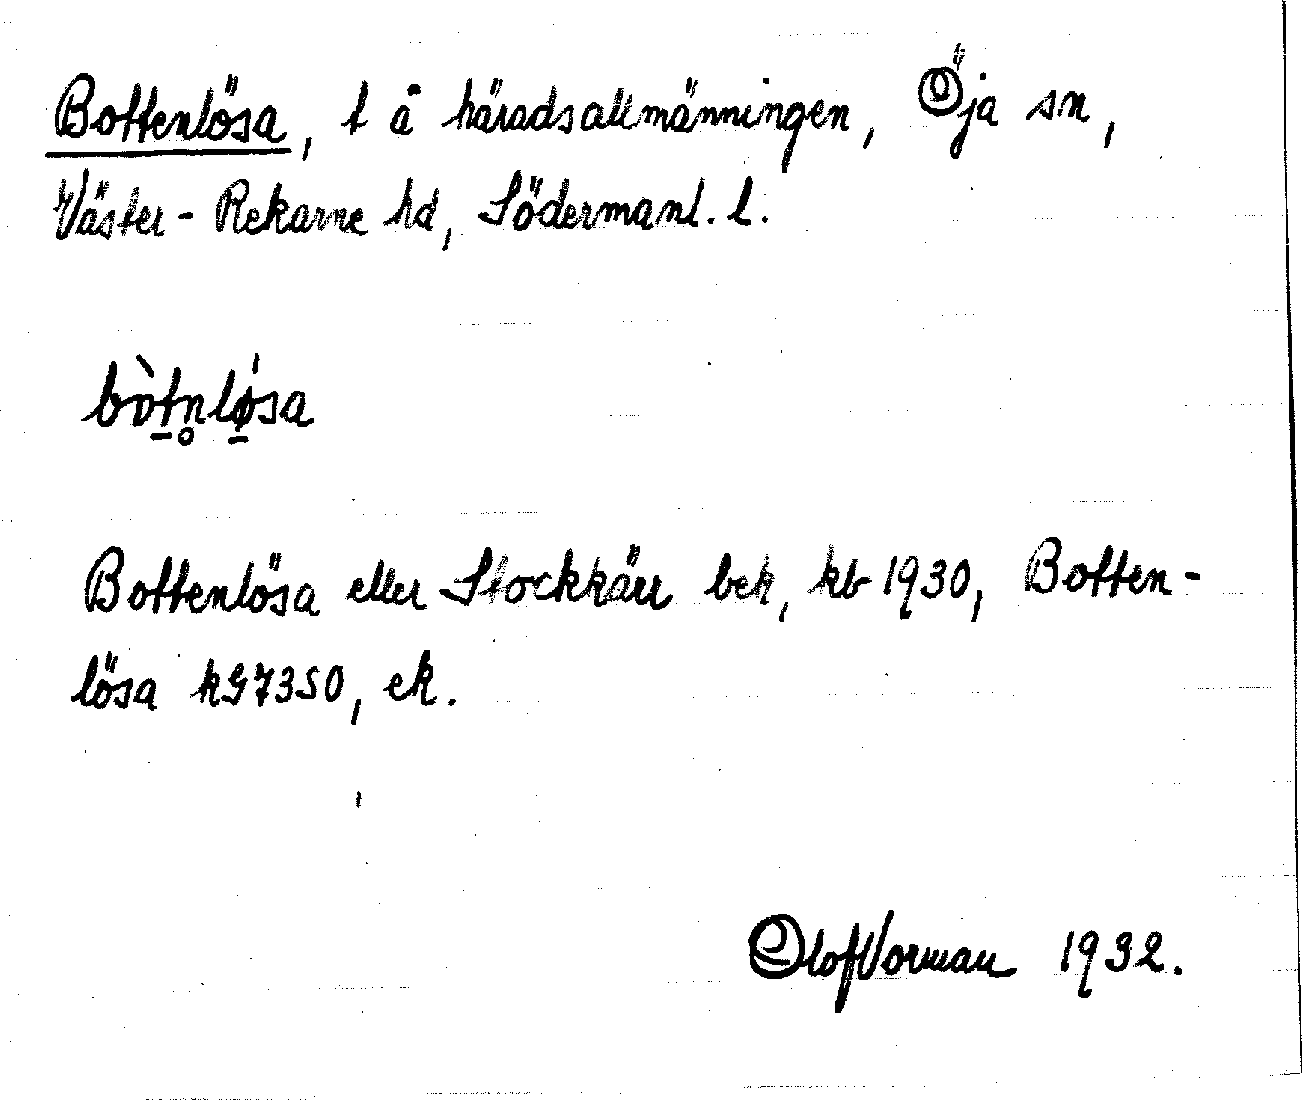 Bottenlösa, t å häradsallmänningen, Öja sn,
Väster-Rekarne hd, Södermanl. l.
bòt̲n̥lǿ̲sa
Bottenlösa eller Stockkärr bek, kb 1930, Botten-
lösa kG7350, ek.
Olof Vorman 1932.